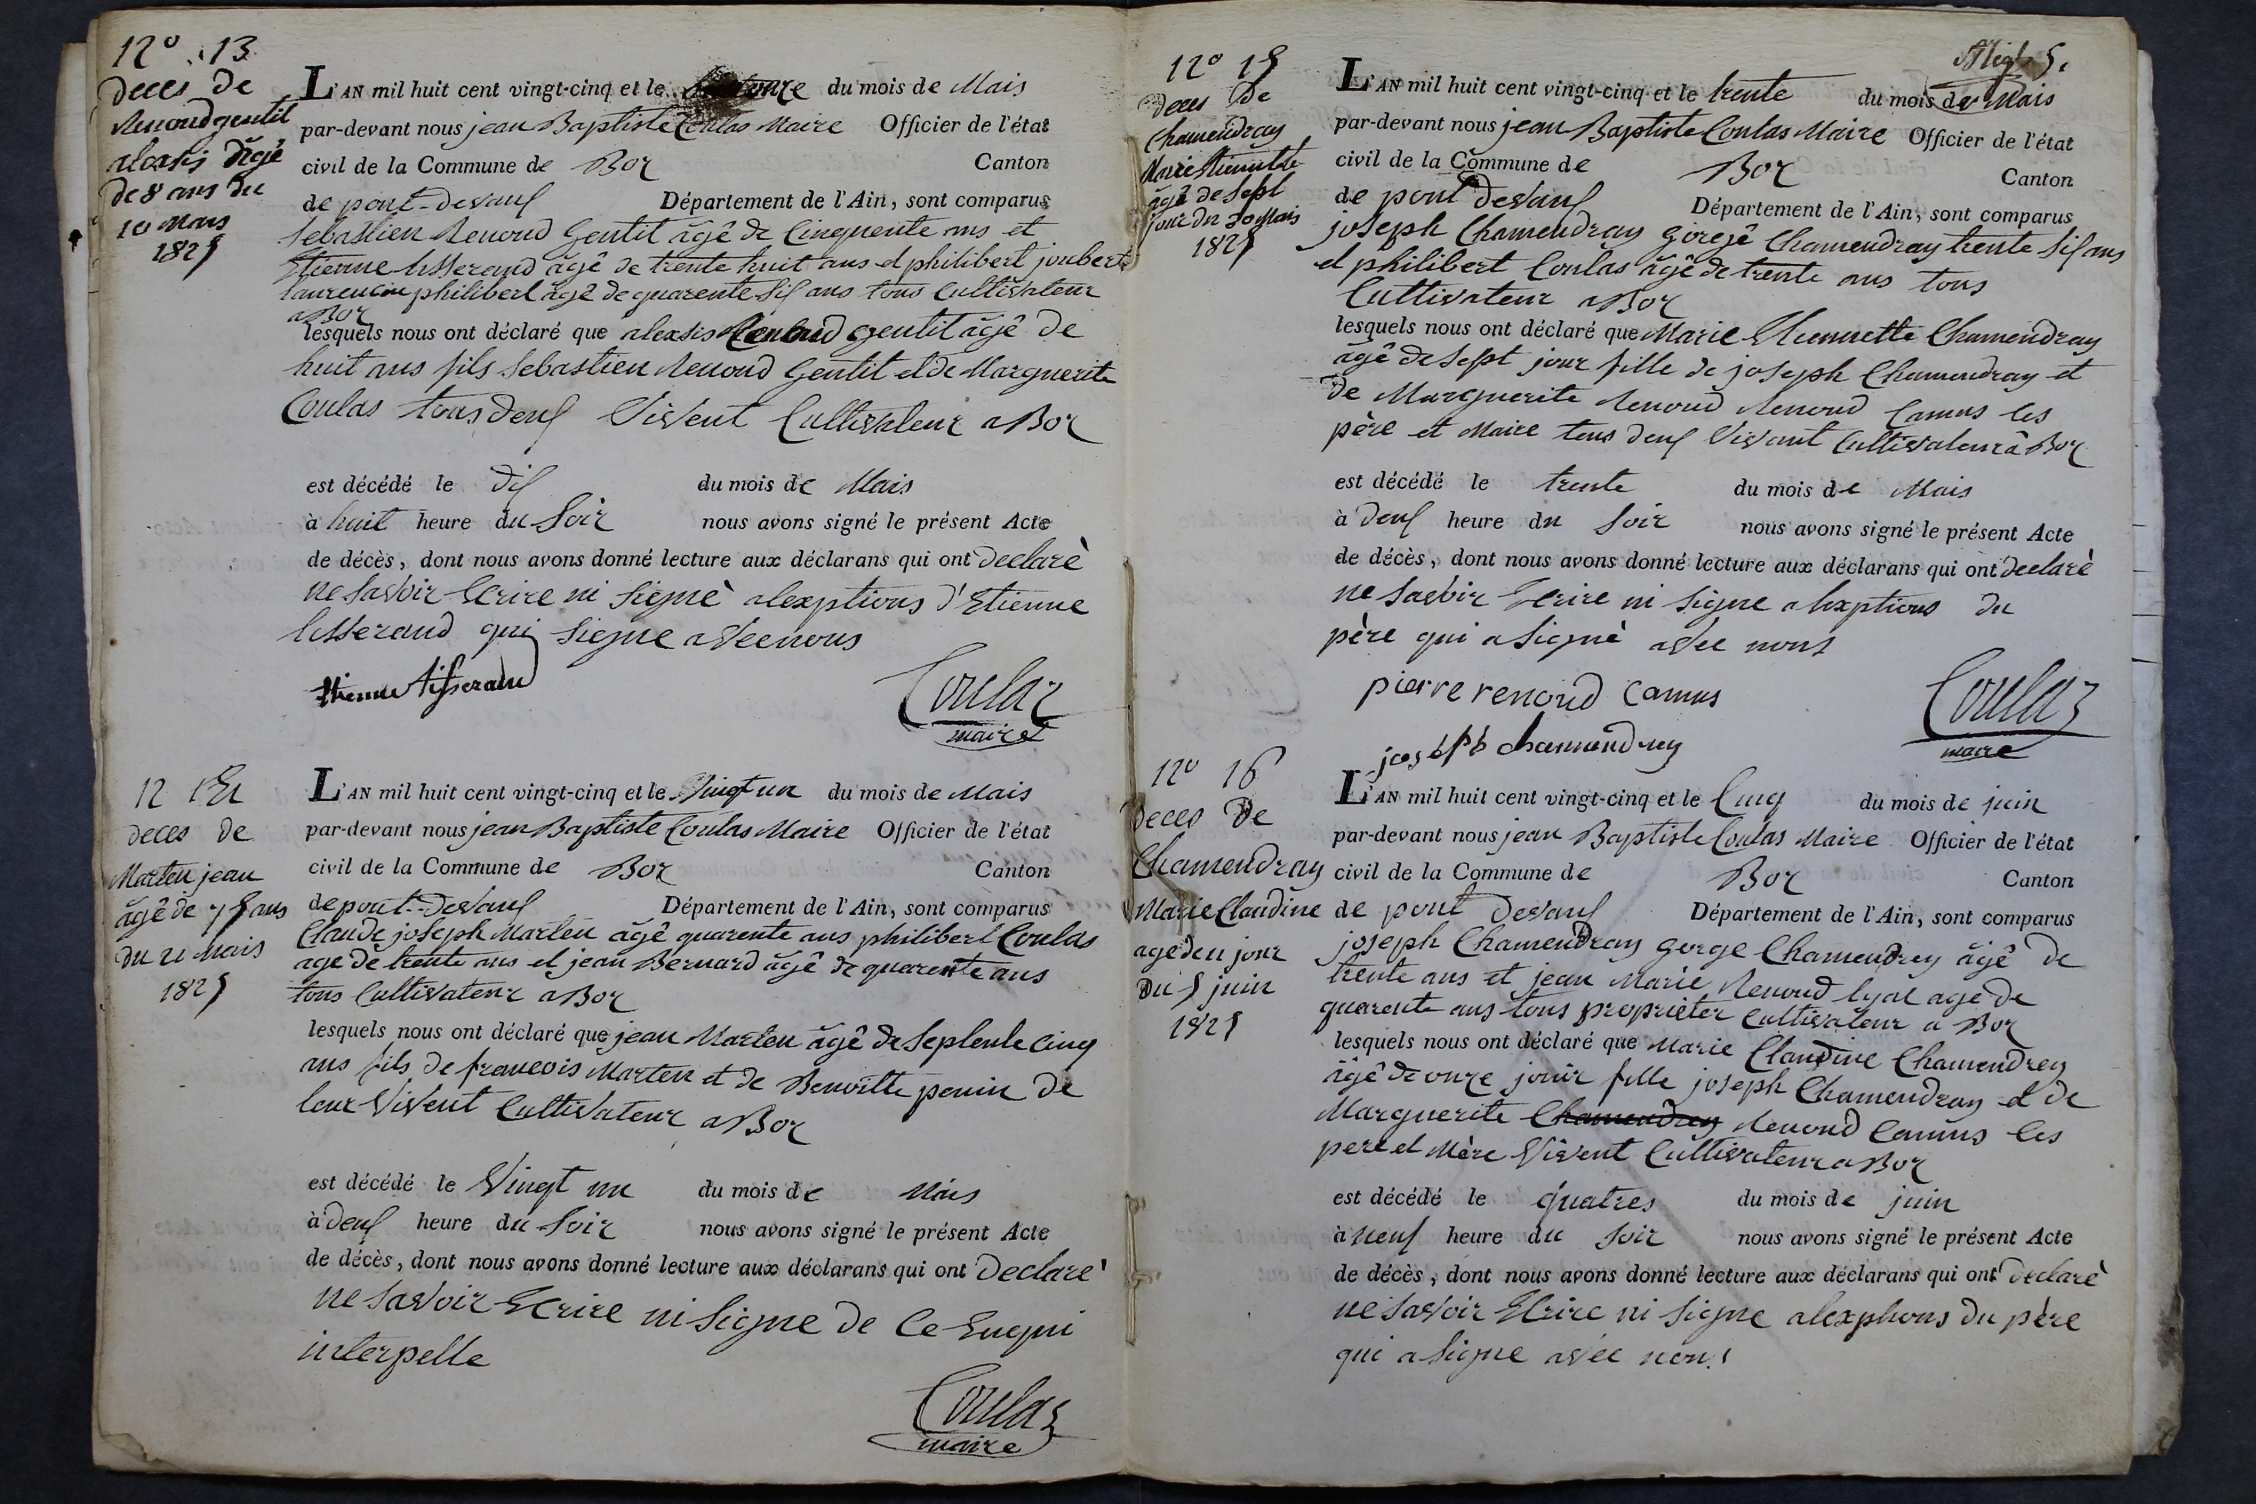 N° 13
deces de
Renoud gentil
alexsis âgê
de 8 ans du
10 Mais
1825
L'AN mil huit cent vingt-cinq et le onze du mois de Mais
par-devant nous jean Baptiste Coulas Maire Officier de l'état
civil de la Commune de Boz Canton
de pont-devaux Département de l'Ain, sont comparus
Sebastien Renoud Gentil âgê de Cinquente ans et
Etienne tisserand âgê de trente huit ans et philibert joubert
laurencin philibert âgê de quarente six ans tous Cultivateur
a Boz
lesquels nous ont déclaré que alexsis Renoud gentil âgê de
huit ans fils Sebastien Renoud Gentil et de Marguerite
Coulas tous deux Vivent Cultivateur a Boz
est décédé le dix du mois de Mais
à huit heure du Soir nous avons signé le présent Acte
de décès, dont nous avons donné lecture aux déclarans qui ont declarè
ne savoir Ecrire ni Signè alexptions d'Etienne
tisserand qui signe avec nous
Etienne tisserand
Coulas
maire
N 14
deces de
Marten jean
âgê de 75 ans
du 21 Mais
1825
L'AN mil huit cent vingt-cinq et le Vingt un du mois de Mais
par-devant nous jean Baptiste Coulas Maire Officier de l'état
civil de la Commune de Boz Canton
de pont-devaux Département de l'Ain, sont comparus
Claude joseph Marten âgê quarente ans philibert Coulas
age de trente ans et jean Bernard âgê de quarente ans
tous Cultivateur a Boz
lesquels nous ont déclaré que jean Marten âgê de Septente cinq
ans fils de francois Marten et de Benoitte penin de
leur Vivent Cultivateur a Boz
est décédé le Vingt un du mois de Mais
à deux heure du Soir nous avons signé le présent Acte
de décès, dont nous avons donné lecture aux déclarans qui ont Declarè
ne savoir Ecrire ni Signe de Ce Enqui
interpelle
Coulas
maire
5.
N° 15
deces de
Chamendray
Marie Etiennette
âgê de Sept
jour du 30 Mais
1825
L'AN mil huit cent vingt-cinq et le trente du mois de Mais
par-devant nous jean Baptiste Coulas Maire Officier de l'état
civil de la Commune de Boz Canton
de pont devaux Département de l'Ain, sont comparus
joseph Chamendray goregê Chamendray trente six ans
et philibert Coulas âgê de trente ans tous
Cultivateur a Boz
lesquels nous ont déclaré que Marie Etiennette Chamendray
âgê de Sept jour fille de joseph Chamendray et
de Marguerite Renoud Renoud Camus les
père et Maire tous deux Vivant Cultivateur â Boz
est décédé le trente du mois de Mais
à deux heure du Soir nous avons signé le présent Acte
de décès, dont nous avons donné lecture aux déclarans qui ont declarè
ne Savoir Ecrire ni signe alexptions du
père qui a Signè avec nous
pierre renoud camus
joseph chamendrey
Coulas
maire
N° 16
deces de
Chamendray
Marie Claudine
age den jour
du 5 juin
1825
L'AN mil huit cent vingt-cinq et le Cinq du mois de juin
par-devant nous jean Baptiste Coulas Maire Officier de l'état
civil de la Commune de Boz Canton
de pont devaux Département de l'Ain, sont comparus
joseph Chamendray gorge Chamendrey âgê de
trente ans et jean Marie Renoud lyat age de
quarente ans tous proprièter Cultivateur a Boz
lesquels nous ont déclaré que Marie Claudine Chamendrey
âgê de onze jouir fille joseph Chamendray et de
Marguerite Chamendrey Renoud Camus les
pere et Mère Vivent Cultivateur a Boz
est décédé le quatres du mois de juin
à neuf heure du Soir nous avons signé le présent Acte
de décès, dont nous avons donné lecture aux déclarans qui ont declarè
ne Savoir Ecrire ni signe alexptions du père
qui a signe avec nous